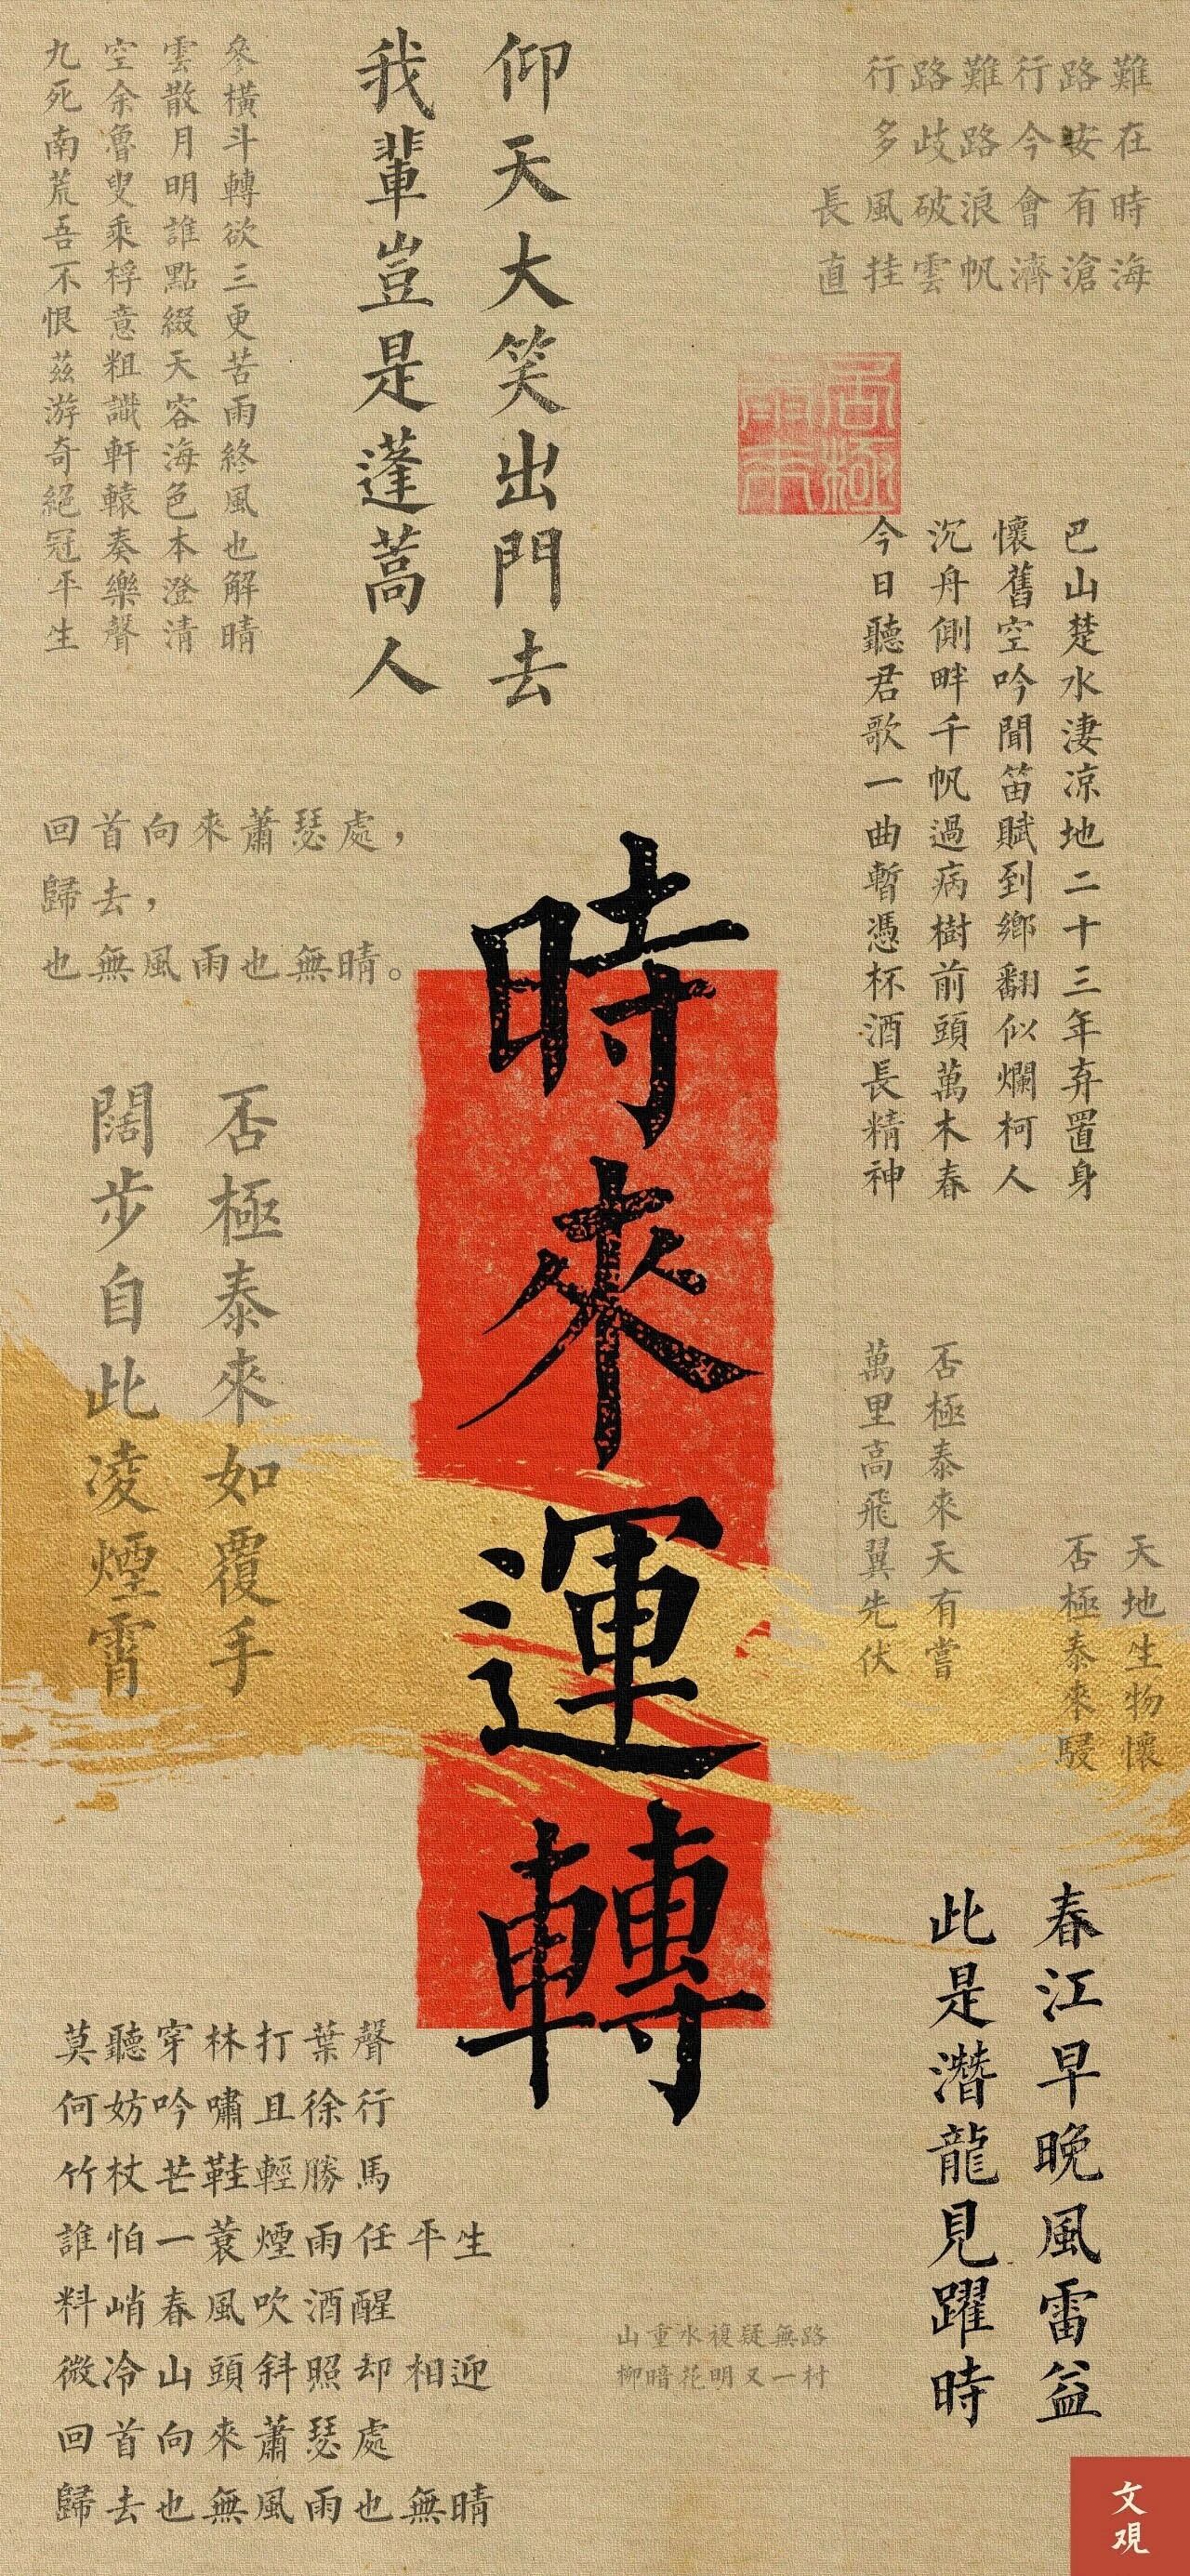 行路難行路難
多歧路今安在
長風破浪會有時
直挂雲帆濟滄海
仰天大笑出門去
我輩豈是蓬蒿人
參橫斗轉欲三更苦雨終風也解晴
雲散月明誰點綴天容海色本澄清
空余魯叟乘桴意粗識軒轅奏樂聲
九死南荒吾不恨茲游奇絕冠平生
巴山楚水淒凉地二十三年弃置身
懷舊空吟聞笛賦到鄉翻似爛柯人
沉舟側畔千帆過病樹前頭萬木春
今日聽君歌一曲暫憑杯酒長精神
回首向來蕭瑟處，
歸去，
也無風雨也無晴。
時來運轉
否極泰來如覆手
闊步自此凌煙霄
否極泰來天有嘗
萬里高飛翼先伏
天地生物懷
否極泰來駸
春江早晚風雷益
此是潛龍見躍時
莫聽穿林打葉聲
何妨吟嘯且徐行
竹杖芒鞋輕勝馬
誰怕一蓑煙雨任平生
料峭春風吹酒醒
微冷山頭斜照却相迎
回首向來蕭瑟處
歸去也無風雨也無晴
山重水複疑無路
柳暗花明又一村
文觀